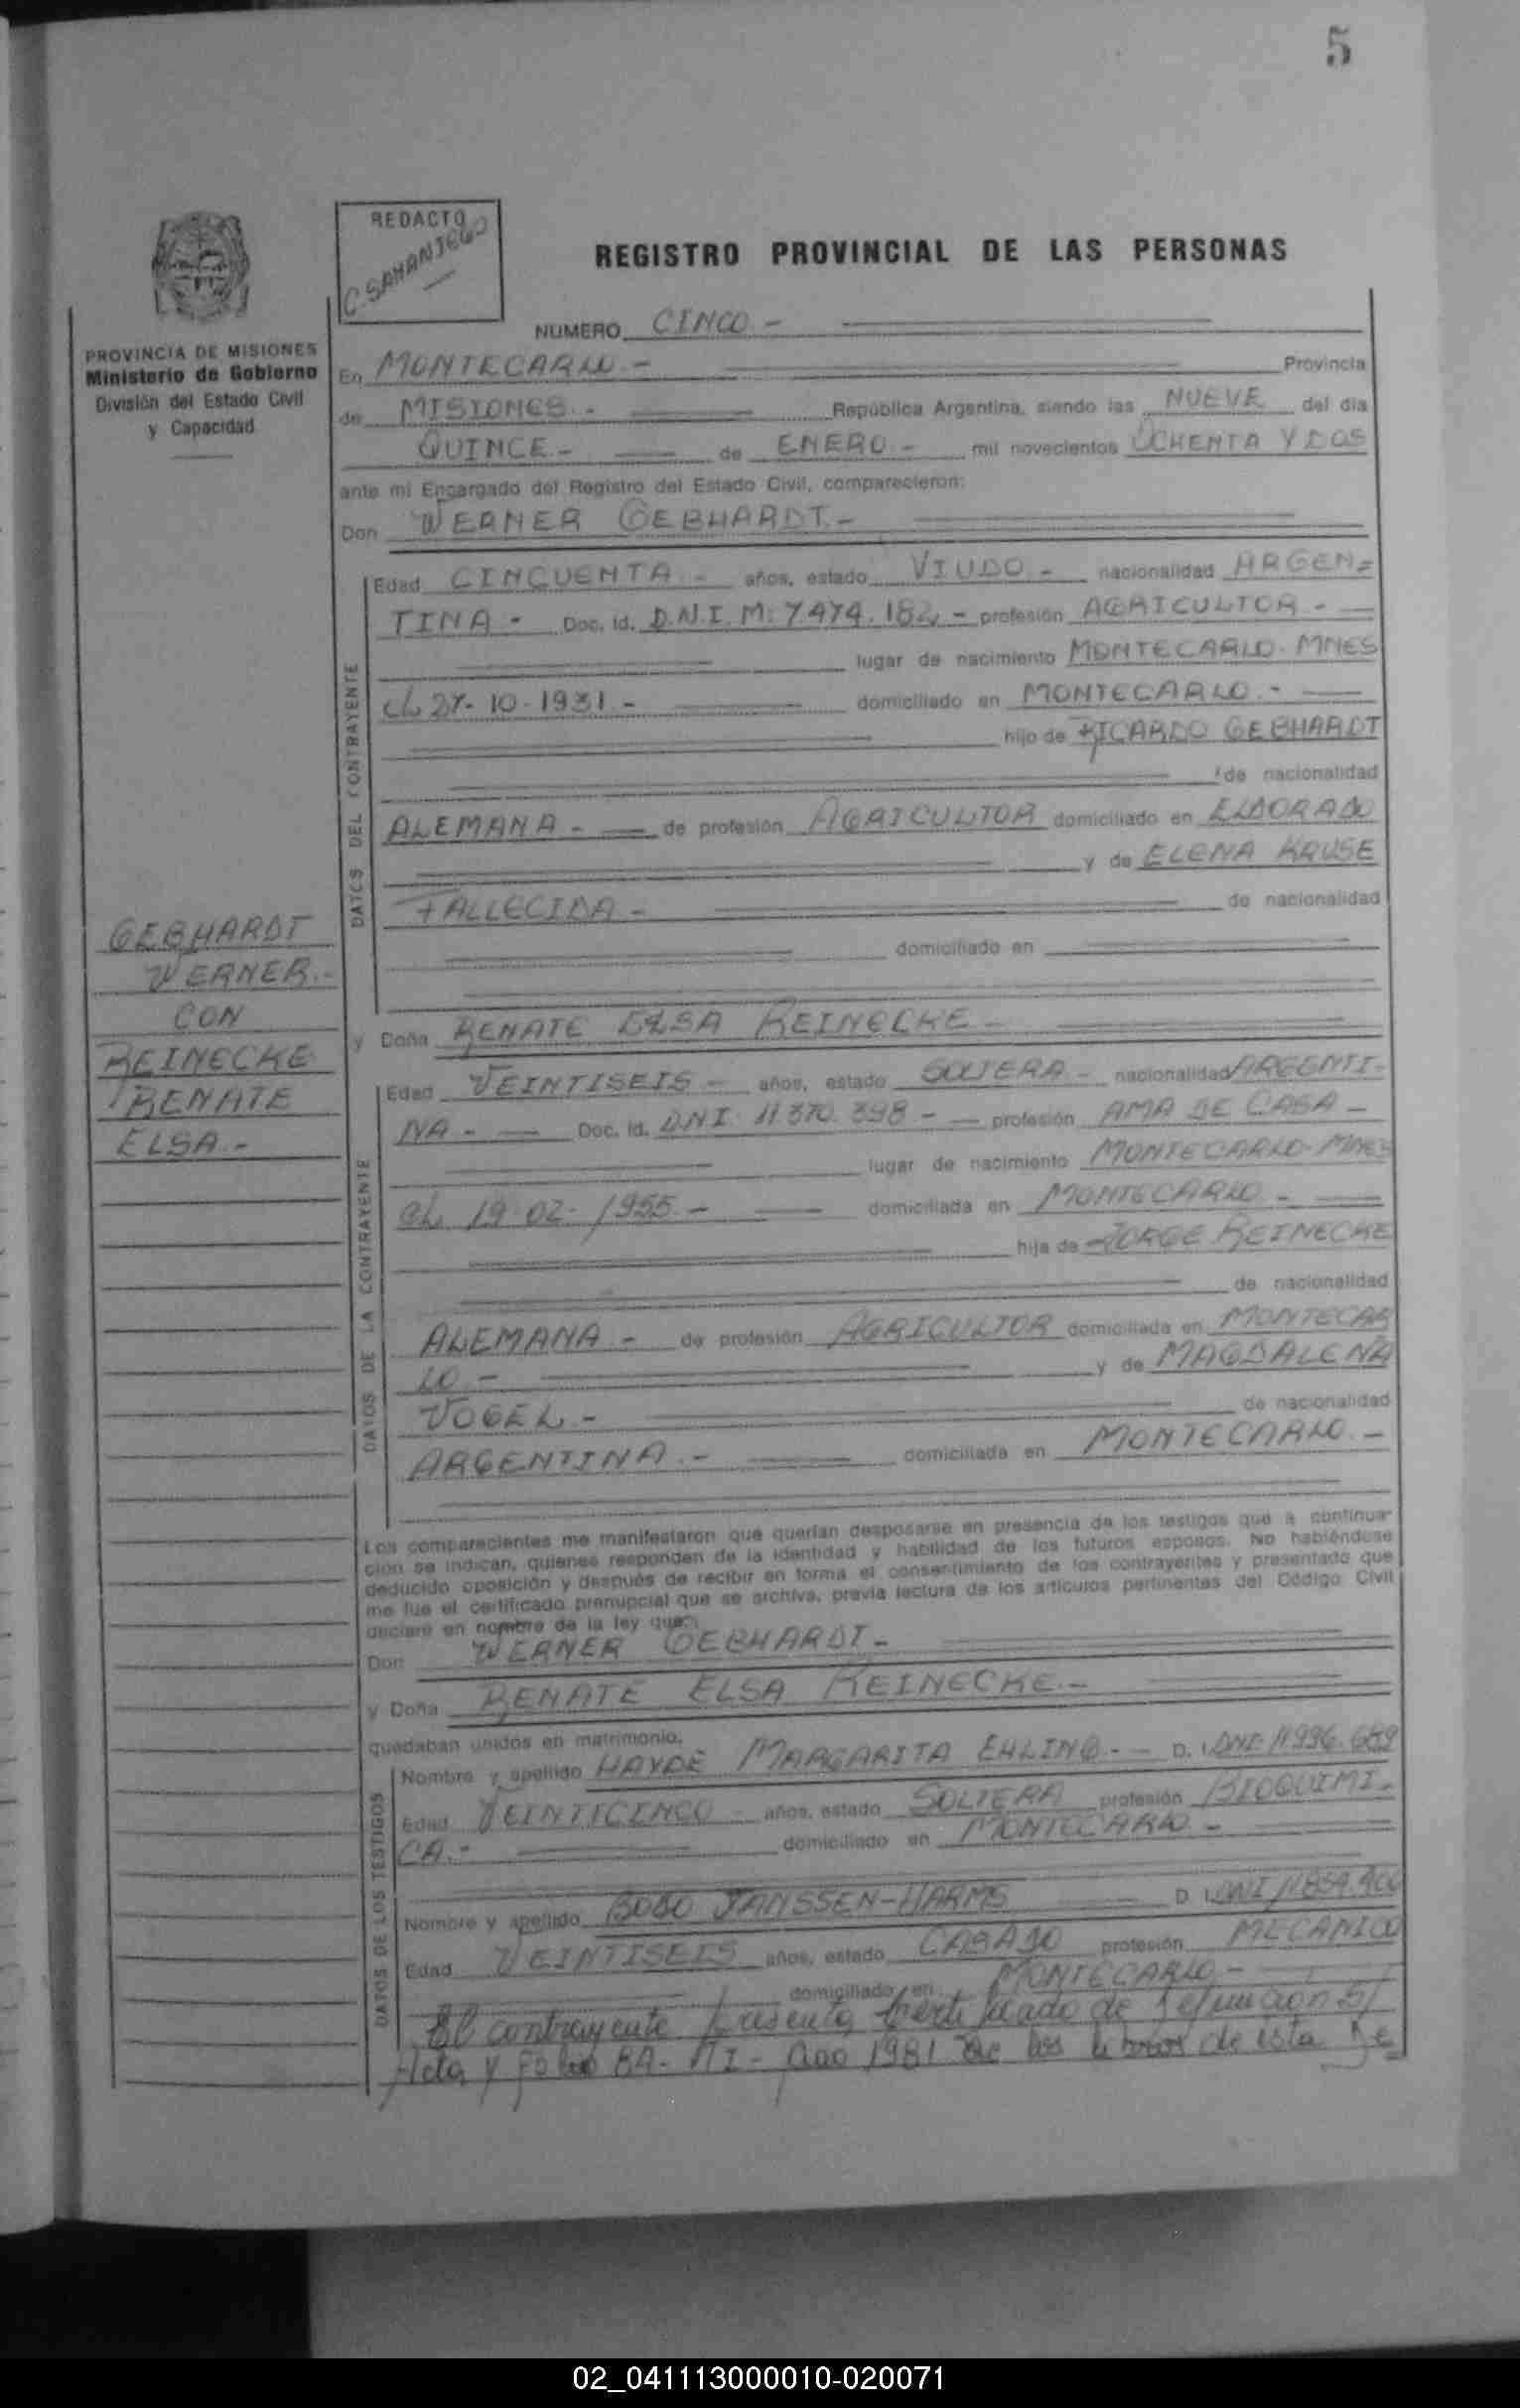 5
REDACTO
C. SAMANIEGO
REGISTRO PROVINCIAL DE LAS PERSONAS
PROVINCIA DE MISIONES
Ministerio de Gobierno
División del Estado Civil
y Capacidad
NUMERO CINCO.-
En MONTECARLO.- Provincia
de MISIONES.- República Argentina, siendo las NUEVE del día
QUINCE.- de ENERO.- mil novecientos OCHENTA Y DOS
ante mi Encargado del Registro del Estado Civil, comparecieron:
Don WERNER GEBHARDT.-
DATOS DEL CONTRAYENTE
Edad CINCUENTA.- años, estado VIUDO.- nacionalidad ARGEN=
TINA.- Doc. Id. D.N.I. M: 7.474.182.- profesión AGRICULTOR.-
lugar de nacimiento MONTECARLO. MNES
EL 27-10-1931.- domiciliado en MONTECARLO.-
hijo de RICARDO GEBHARDT
de nacionalidad
ALEMANA.- de profesión AGRICULTOR domiciliado en ELDORADO
y de ELENA KRUSE
FALLECIDA.- de nacionalidad
domiciliado en
GEBHARDT
WERNER.-
CON
REINECKE
RENATE
ELSA.-
y Doña RENATE ELSA REINECKE.-
DATOS DE LA CONTRAYENTE
Edad VEINTISEIS.- años, estado SOLTERA.- nacionalidad ARGENTI-
NA.- Doc. Id. DNI. 11.370.398.- profesión AMA DE CASA.-
lugar de nacimiento MONTECARLO-MNES
EL 19-02-1955.- domiciliada en MONTECARLO.-
hija de JORGE REINECKE
de nacionalidad
ALEMANA.- de profesión AGRICULTOR domiciliada en MONTECAR
LO.- y de MAGDALENA
VOGEL.- de nacionalidad
ARGENTINA.- domiciliada en MONTECARLO.-
Los comparecientes me manifestaron que querían desposarse en presencia de los testigos que a continua-
ción se indican, quienes responden de la identidad y habilidad de los futuros esposos. No habiéndose
deducido oposición y después de recibir en forma el consentimiento de los contrayentes y presentado que
me fue el certificado prenupcial que se archiva, previa lectura de los artículos pertinentes del Código Civil
declaré en nombre de la ley que:
Don WERNER GEBHARDT.-
y Doña RENATE ELSA REINECKE.-
quedaban unidos en matrimonio.
DATOS DE LOS TESTIGOS
Nombre y apellido HAYDÉ MARGARITA EHLING.- D. I. DNI 11.996.689
Edad VEINTICINCO años, estado SOLTERA profesión BIOQUIMI-
CA.- domiciliado en MONTECARLO.-
Nombre y apellido BODO JANSSEN-HARMS D. I. DNI
Edad VEINTISEIS años, estado CASADO profesión MECANICO
domiciliado en MONTECARLO.-
El contrayente presenta certificado de defunción s/
Acta y Folio Año 1981 de los libros de esta De
02_041113000010-020071